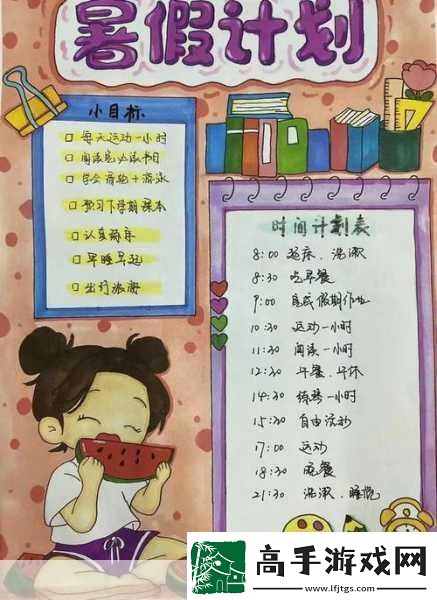 暑假计划
小目标
每天运动一小时
阅读完必读书目
学会滑轮+游泳
预习下学期课本
认真练字
早睡早起
出行旅游
时间计划表
8:00 起床、洗漱
8:30 吃早餐
9:00 完成假期作业
10:30 运动一小时
11:30 阅读一小时
12:30 午餐、午休
14:30 练琴一小时
15:30 自由活动
17:00 运动
18:30 晚餐
21:30 洗漱、睡觉
高手游戏网
www.lfjtgs.com